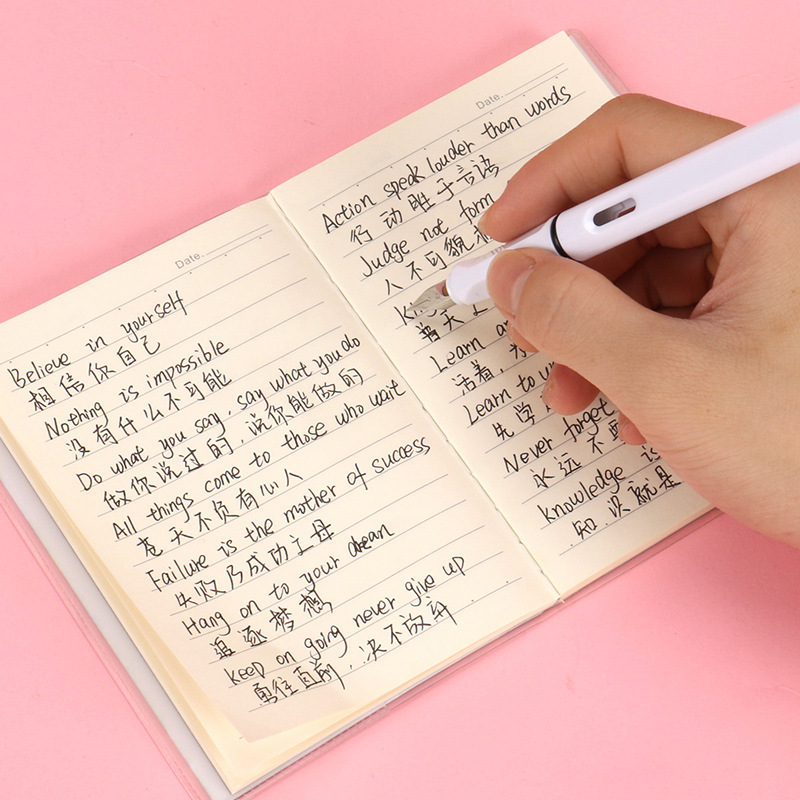 Date.
Believe in yourself
相信你自己
Nothing is impossible
没有什么不可能
Do what you say, say what you do
做你说过的，说你能做的
All things come to those who wait
苍天不负有心人
Failure is the mother of success
失败乃成功之母
Hang on to your dream
追逐梦想
keep on going never give up
勇往直前，决不放弃
Date.
Action speak louder than words
行动胜于言语
Judge not form
人不可貌
普天
Learn
活着，
Learn to
先学
Never forget
永远不要
knowledge is
知识就是